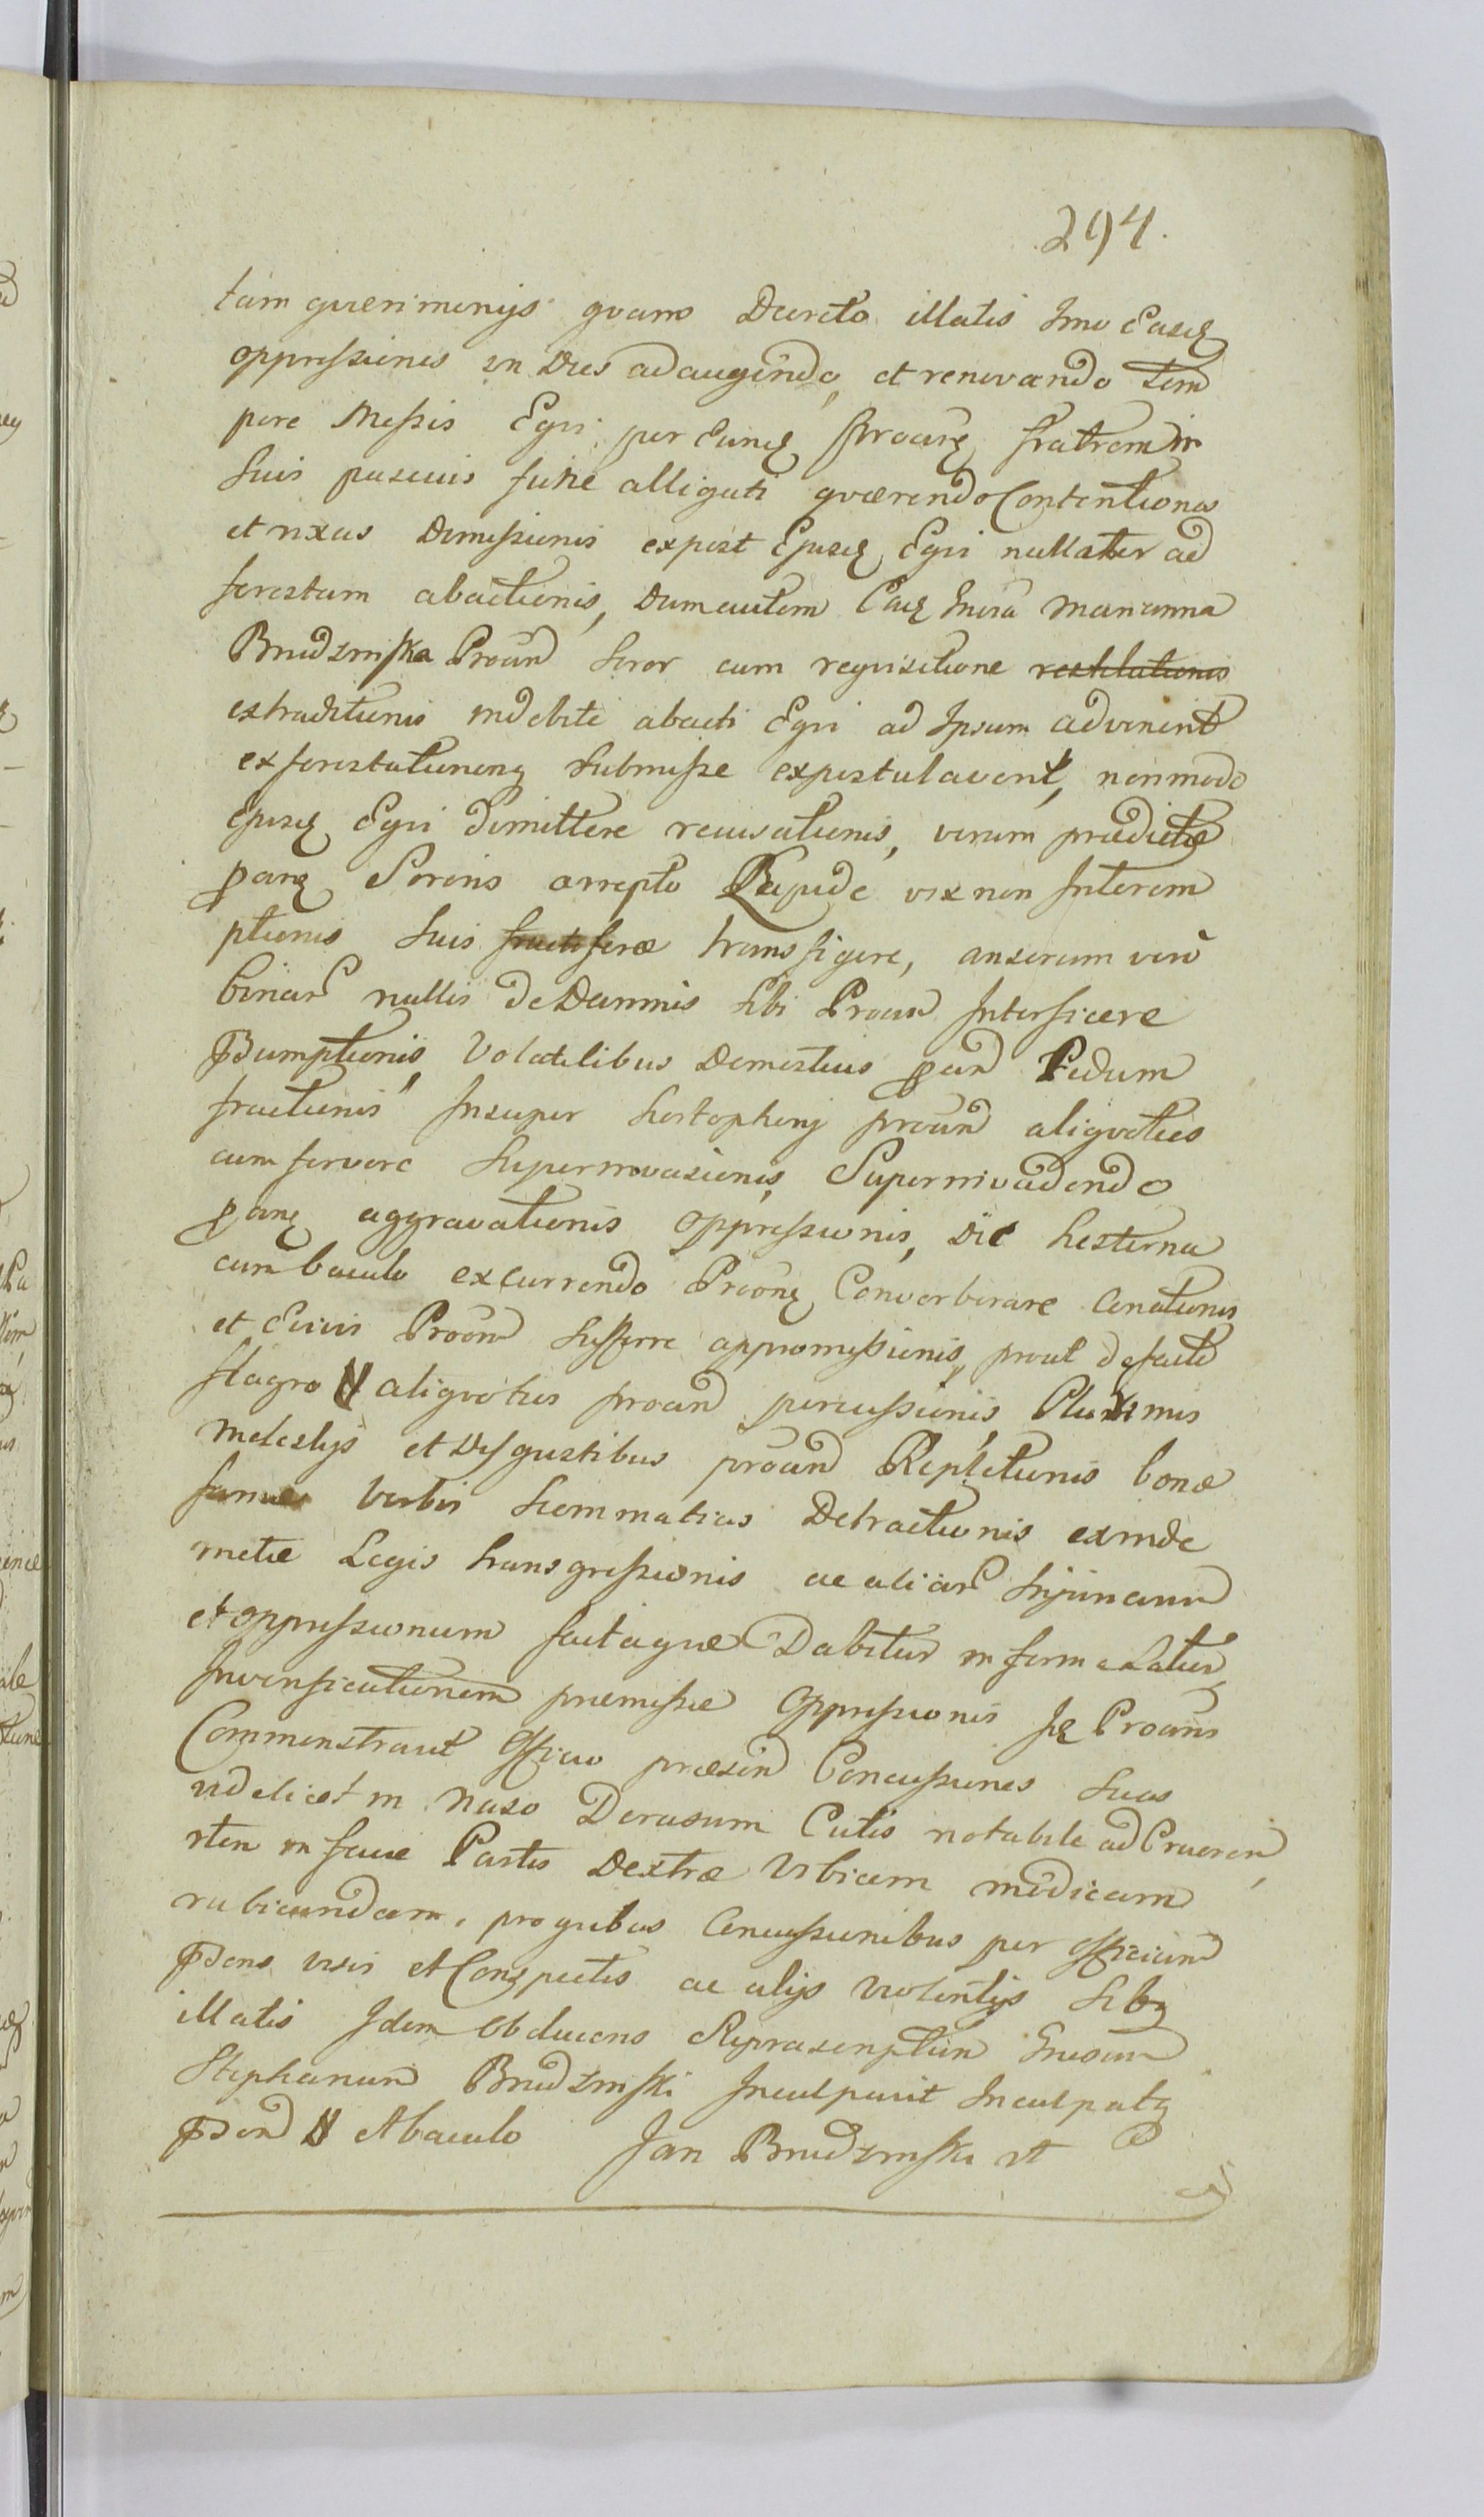 294.
tam querimonijs quam Decreto illatis Imo Easq
oppressiones in Dies adaugendo, et renovando Tem
pore Messis Equi per Eunq fratrem in
suis pascuis fune alligati quaerendo Contentiones
et nxus Demissionis expost Ejusq Equi nullater ad
forestam abactionis, Dum autem Marianna
Brudzinska Proand Soror cum requisitione restitutionis
extraditionis indebite abacti Equi ad Ipsum advenerit
ex forestationemq submisse expostulaverit, nonmodo
Ejusq Equi dimittere recusationis, verum praedictae
Sororis arrepto Lapide vix non Interem
ptionis suis transfigere, anserum vero
binar nullis de Damnis sibi Proand Interficere
Volatilibus Domesticis Pedum
fractionis Insuper aliquoties
cum fervore Superinvasionis, Superinvadendo
aggravationis oppressionis, Die hesterna
cum baculo excurrendo Converberare Conationis
et Eivis Proand Sufferre appromissionis, prout defacto
flagro N aliquoties proand percussionis, Plurimis
molestijs et Disgustibus proand Repletionis bonae
famae Verbis Scommaticis Detractionis exinde
metae Legis transgressionis ac aliar Injuriarum
et oppressionum factaque Dabitur in forma Latiori
praemissae Oppressionis Proans
Commonstravit Officio praesend Concussiones suas
videlicet in Naso Derasum Cutis notabile ad Cruorem,
item in facie Partis Dextrae Vibicem modicam
rubicundam, pro quibus Concussionibus per officium
visis et Conspectis ac alijs Violentijs sibq
illatis Idem Obducens
Stephanum Brudzinski Inculpavit Inculpatq
N A baculo Jan Brudzinski